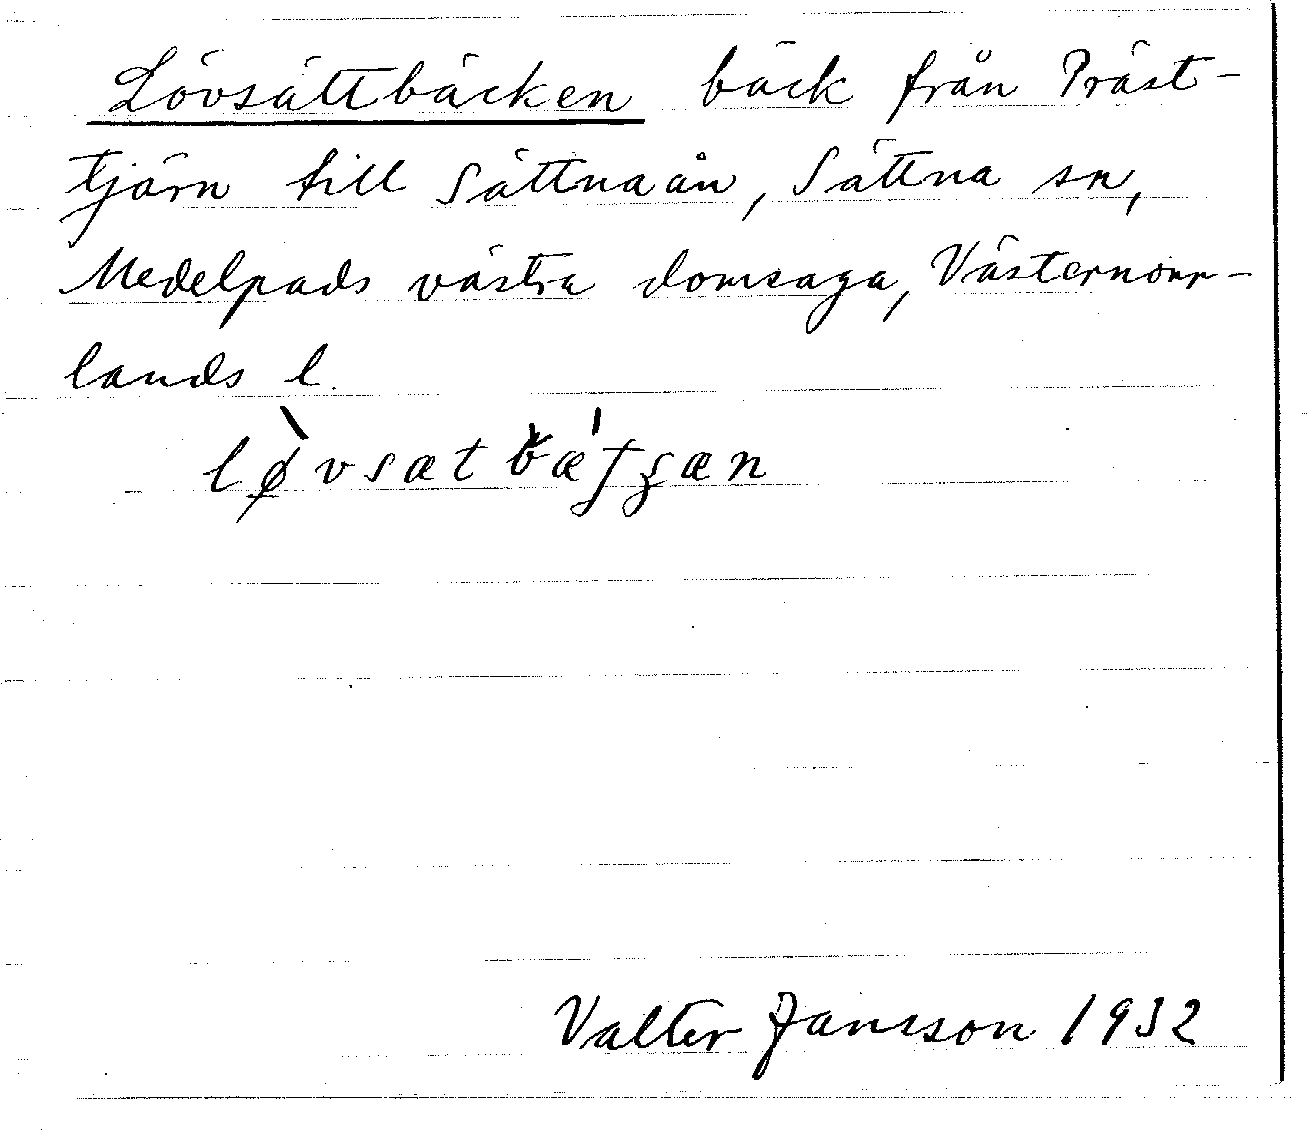 Lövsättbäcken bäck från Präst-
tjärn till Sättnaån, Sättna sn,
Medelpads västra domsaga, Västernorr-
lands l.
lø̀vsætbæ̍ʃʒæn
Valter Jansson 1932